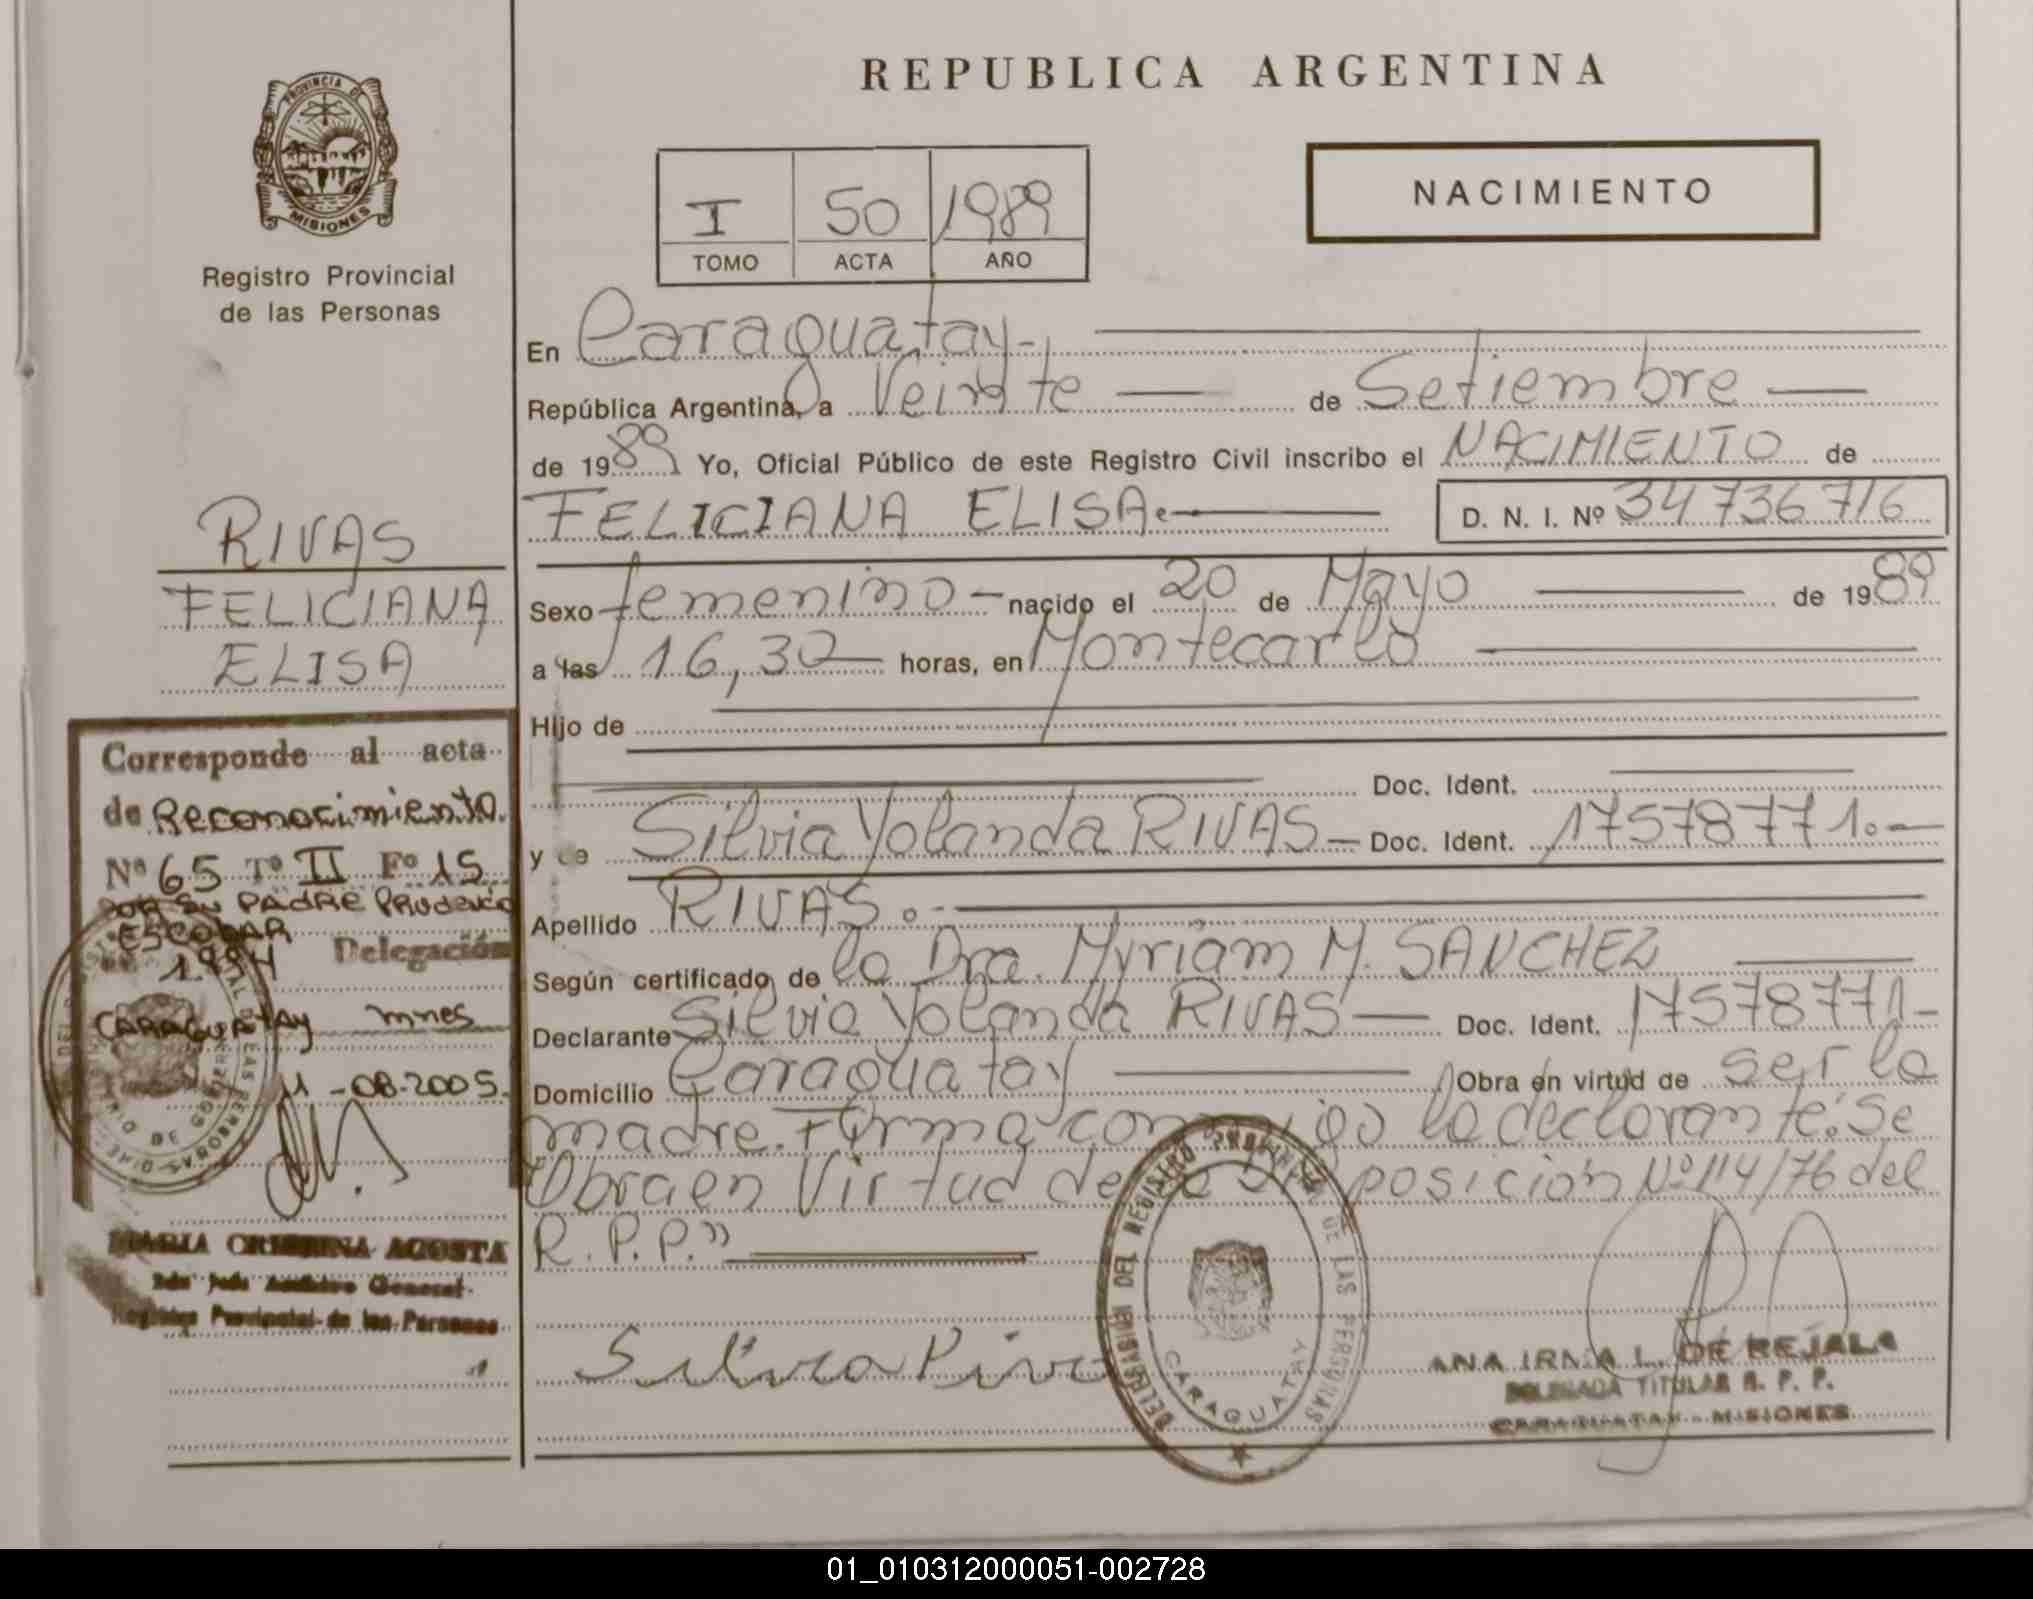 REPUBLICA ARGENTINA
PROVINCIA DE
MISIONES
Registro Provincial
de las Personas
NACIMIENTO
I 50 1989
TOMO ACTA AÑO
En Caraguatay.-
República Argentina, a Veinte de Setiembre
de 1989 Yo, Oficial Público de este Registro Civil inscribo el NACIMIENTO de
FELICIANA ELISA.- D. N. I. Nº 34736716
RIVAS
FELICIANA
ELISA
Sexo femenino - nacido el 20 de Mayo de 1989
a las 16,30 horas, en Montecarlo
Hijo de
Doc. Ident.
y de Silvia Yolanda RIVAS - Doc. Ident. 17578771.-
Apellido RIVAS.-
Según certificado de la Dra. Myriam M. SANCHEZ
Declarante Silvia Yolanda RIVAS Doc. Ident. 17578771-
Domicilio Caraguatay Obra en virtud de ser la
madre. Firma la declarante: Se
Obra en Virtud de posición Nº 114/76 del
R.P.P."
Corresponde al acta
de Reconocimiento.
Nº 65 Tº II Fº 15
POR SU PADRE Prudencio
ESCOBAR
1994 Delegación
CARAGUATAY mnes
11-08-2005.
MARIA CRISTINA AGOSTA
Archivo General
Registro Provincial de las Personas
Silvia Riva
DELEGACION DEL REGISTRO PROVINCIAL DE LAS PERSONAS
CARAGUATAY
ANA IRMA L. DE REJALA
DELEGADA TITULAR R. P. P.
CARAGUATAY - MISIONES
01_010312000051-002728